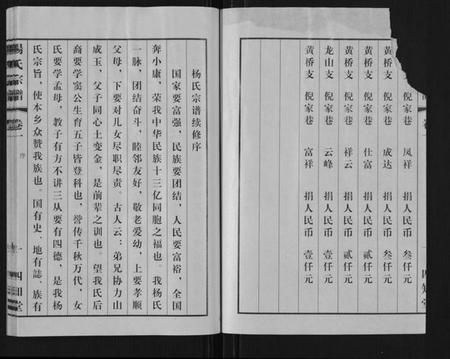 倪家巷 凤祥 捐人民币 叁仟元
黄桥支 倪家巷 成达 捐人民币 叁仟元
黄桥支 倪家巷 仕富 捐人民币 贰仟元
黄桥支 倪家巷 祥云 捐人民币 贰仟元
龙山支 倪家巷 云峰 捐人民币 壹仟元
黄桥支 倪家巷 富祥 捐人民币 壹仟元
杨氏宗谱续修序
国家要富强，民族要团结，人民要富裕，全国
奔小康，荣我中华民族十三亿同胞之福也。我杨氏
一脉，团结奋斗，睦邻友好，敬老爱幼，上要孝顺
父母，下要对儿女尽职尽责。古人云：弟兄协力山
成玉，父子同心土变金，是前辈之训也。望我氏后
裔要学窦公生育五子皆登科也，誉传千秋万代，女
氏要学孟母，教子有方不讲三从要有四德，是我杨
氏宗旨，使本乡众赞我族也。国有史，地有誌，族有
杨氏宗谱
卷一
序
一
四知堂